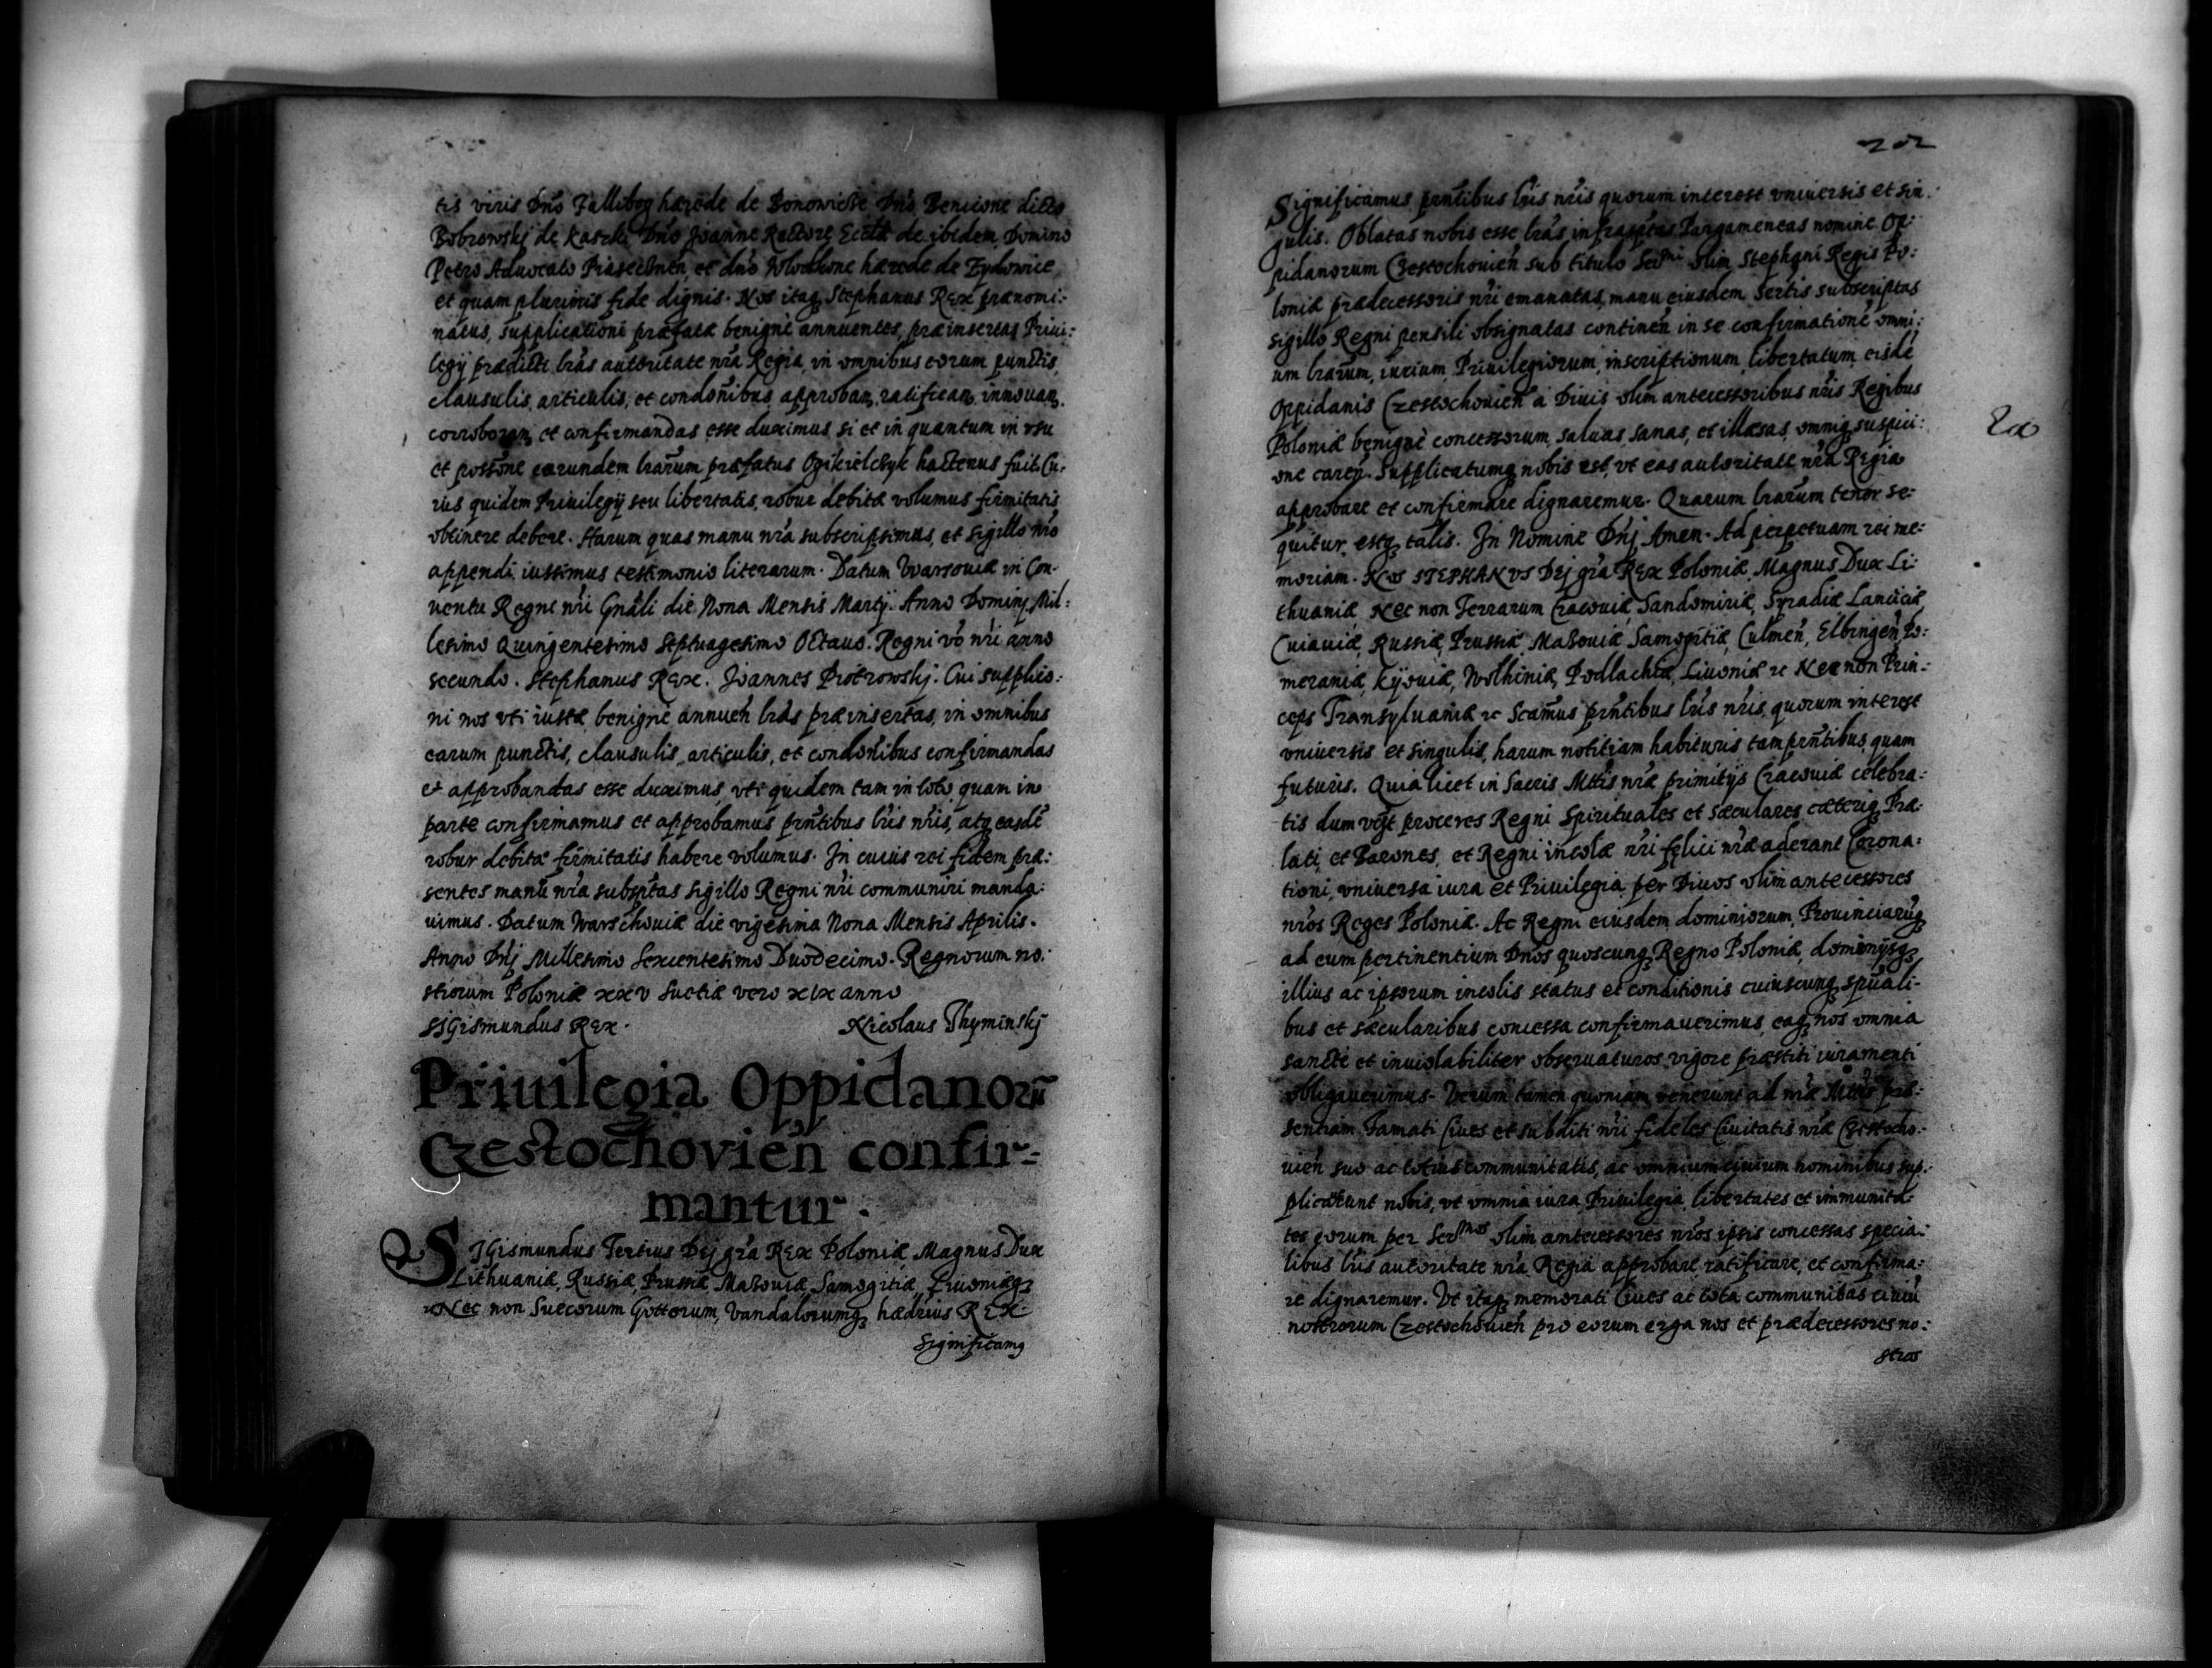 tis viris Dño Fallibog hærede de Bonowicze Dño Bencione dicto
Bobrowskj de Kaszki Dño Joanne Rectore Eccłæ de ibidem Domino
Petro Aduocato Piasecznen et dño Wlodkone hærede de Zydowice
et quam plurimis fide dignis. Nos itaq Stephanus Rex prænomi:
natus, supplicationi præfatæ benignè annuentes, præinsertas Priui:
legÿ prædicti lrãs autoritate nrã Regia, in omnibus eorum punctis,
clausulis, articulis, et condonĩbus approban, ratifican, innouan,
corroboran, et confirmandas esse duximus si et in quantum in vsu
et possõne earundem lrarũm præfatus Ogikielczyk hactenus fuit. Cu:
ius quidem Priuilegÿ seu libertatis, robur debitæ volumus firmitatis
obtinere debere. Harum quas manu nrã subscripsimus, et sigillo nrõ
appendi iussimus testimonio literarum. Datum Varsouiæ in Con-
uentu Regni nrĩ Gnãli die Nona Mensis Martÿ. Anno Dominj Mil:
lesimo Quingentesimo Septuagesimo Octauo. Regni võ nrĩ anno
secundo. Stephanus Rex. Joannes Piotrowskj. Cui supplicõ:
ni nos vti iustæ benignè annueñ lrãs præinsertas, in omnibus
earum punctis, clausulis, articulis, et condonĩbus confirmandas
et approbandas esse duximus, vti quidem tam in toto quam in
parte confirmamus et approbamus prñtibus lrĩs nrĩs, atq easdẽ
robur debitæ firmitatis habere volumus. In cuius rei fidem præ:
sentes manũ nrã subscrĩptas sigillo Regni nrĩ communiri manda:
uimus. Datum Warschouiæ die vigesima Nona Mensis Aprilis.
Anno Dñj Millesimo Sexcentesimo Duodecimo. Regnorum no:
strorum Poloniæ xxv Suetiæ vero xix anno
SIGismundus Rex. Nicolaus Thyminskj
Priuilegia Oppidanorũ
Czestochovieñ confir-
mantur.
SIGismundus Tertius Dej grã Rex Poloniæ, Magnus Dux
Lithuaniæ, Russiæ, Prussiæ, Masouiæ, Samogitiæ, Liuoniæq
Nec non Suecorum Gottorum, Vandalorumq hædrius REX.
Significamq
202
Significamus prñtibus lrĩs nrĩs quorum interest vniuersis et sin:
gulis. Oblatas nobis esse lrãs infrascrĩptas Pargameneas nomine Op:
pidanorum Czestochouieñ sub titulo Serᵐⁱ olim Stephani Regis Po:
loniæ prædecessoris nrĩ emanatas, manu eiusdem Sertis subscriptas
sigillo Regni pensili obsignatas continen in se confirmationẽ omni:
um lrarũm, iurium, Priuilegiorum, inscriptionum, libertatum, eisdẽ
Oppidanis Czestochouieñ à Diuis olim antecessoribus nrĩs Regibus
Poloniæ benignè concessorum, saluas sanas, et illæsas, omniq suspici:
one careñ. Supplicatumq nobis est, vt eas autoritate nrã Regia
approbare et confirmare dignaremur. Quarum lrarũm tenor se:
quitur, estq talis. In Nomine Dñj Amen. Ad perpetuam rei me:
moriam. Nos STEPHANVS Dej grã Rex Poloniæ, Magnus Dux Li:
thuaniæ, Nec non Terrarum Cracouiæ, Sandomiriæ, Syradiæ Lanciciæ,
Cuiauiæ, Russiæ, Prussiæ, Masouiæ, Samogitiæ, Culmeñ, Elbingeñ, Po:
meraniæ, Kÿouiæ, Wolhiniæ, Podlachiæ, Liuoniæ rc Nec non Prin-
ceps Transyluaniæ rc Scamũs prñtibus lrĩs nrĩs, quorum interest
vniuersis et singulis, harum notitiam habituris tam prñtibus, quam
futuris. Quia licet in Sacris Mttis nrãe primitÿs Cracouiæ celebra:
tis dum vest proceres Regni Spirituales et Sæculares, cæteriq Præ:
lati, et Barones, et Regni incolæ nrĩ felici nrãe aderant Corona:
tioni, vniuersa iura et Priuilegia, per Diuos olim antecessores
nrõs Reges Poloniæ. Ac Regni eiusdem, dominiorum, Prouinciarũq
ad eum pertinentium Dnõs quoscunq, Regno Poloniæ, dominÿsq
illius ac ipsorum incolis status et conditionis cuiuscunq, spũali-
bus et sæcularibus concessa confirmauerimus, eaq nos omnia
sanctè et inuiolabiliter obseruaturos vigore præstiti iuramenti
obligauerimus. Verum tamen quoniam venerunt ad nrãe Mttis præ:
sentiam Famati Ciues et subditi nrĩ fideles Ciuitatis nrãe Czestocho-
uieñ suo ac totius communitatis, ac omnium ciuium nominibus sup:
plicarunt nobis, vt omnia iura Priuilegia, libertates et immunita-
tes eorum per Serᵐᵒˢ olim antecessores nrõs ipsis concessas specia:
libus lrĩs autoritate nrã Regia approbare, ratificare, et confirma:
re dignaremur. Vt itaq memorati Ciues ac tota communitas ciuiũ
nostrorum Czestochouieñ pro eorum erga nos et prædecessores no:
stros